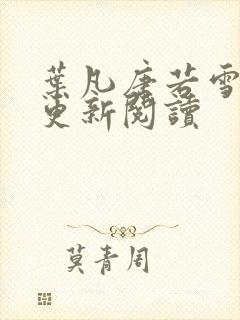 葉凡唐若雪
更新閱讀
莫青周